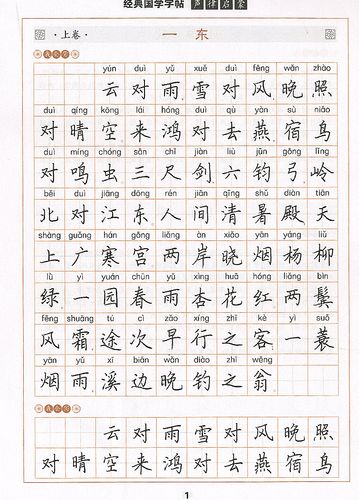 经典国学字帖 声律启蒙
·上卷· 一 东
yún duì yǔ xuě duì fēng wǎn zhào
云对雨雪对风晚照
duì qíng kōng lái hóng duì qù yàn sù niǎo
对晴空来鸿对去燕宿鸟
duì míng chóng sān chǐ jiàn liù jūn gōng lǐng
对鸣虫三尺剑六钧弓岭
běi duì jiāng dōng rén jiān qīng shǔ diàn tiān
北对江东人间清暑殿天
shàng guǎng hán gōng liǎng àn xiǎo yān yáng liǔ
上广寒宫两岸晓烟杨柳
lǜ yì yuán chūn yǔ xìng huā hóng liǎng bìn
绿一园春雨杏花红两鬓
fēng shuāng tú cì zǎo xíng zhī kè yì suō
风霜途次早行之客一蓑
yān yǔ xī biān wǎn diào zhī wēng
烟雨溪边晚钓之翁
云对雨雪对风晚照
对晴空来鸿对去燕宿鸟
1